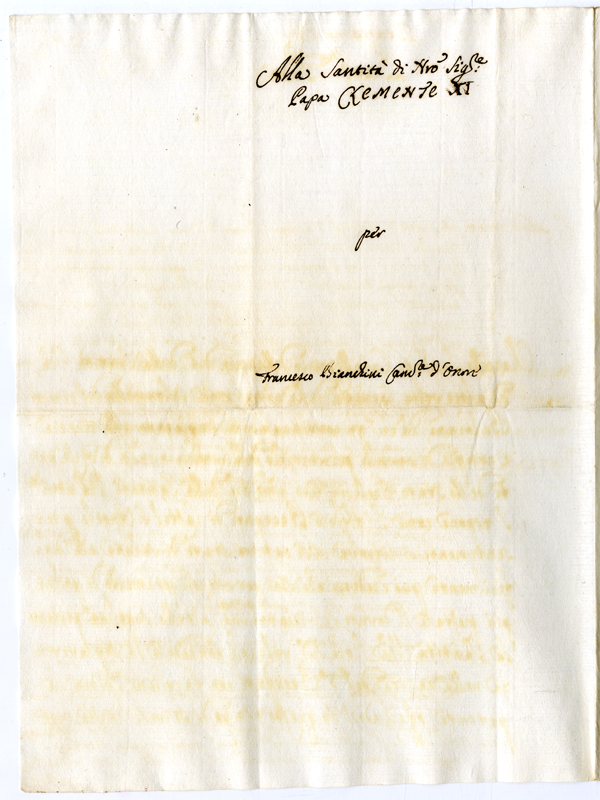 Alla Santità di Nro Sig.re
Papa Clemente XI
per
Francesco Bianchini Cam.re d'Onore